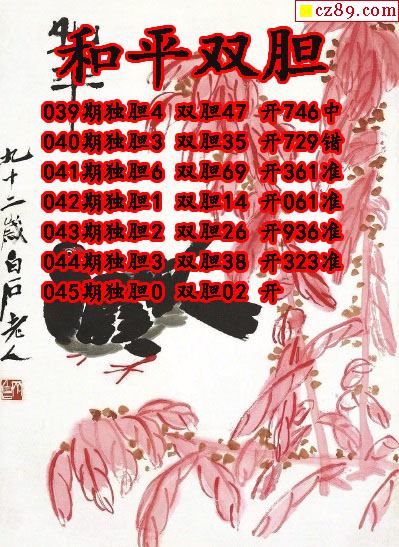 cz89.com
和平双胆
039期独胆4 双胆47 开746中
040期独胆3 双胆35 开729错
041期独胆6 双胆69 开361准
042期独胆1 双胆14 开061准
043期独胆2 双胆26 开936准
044期独胆3 双胆38 开323准
045期独胆0 双胆02 开
九十二岁白石老人